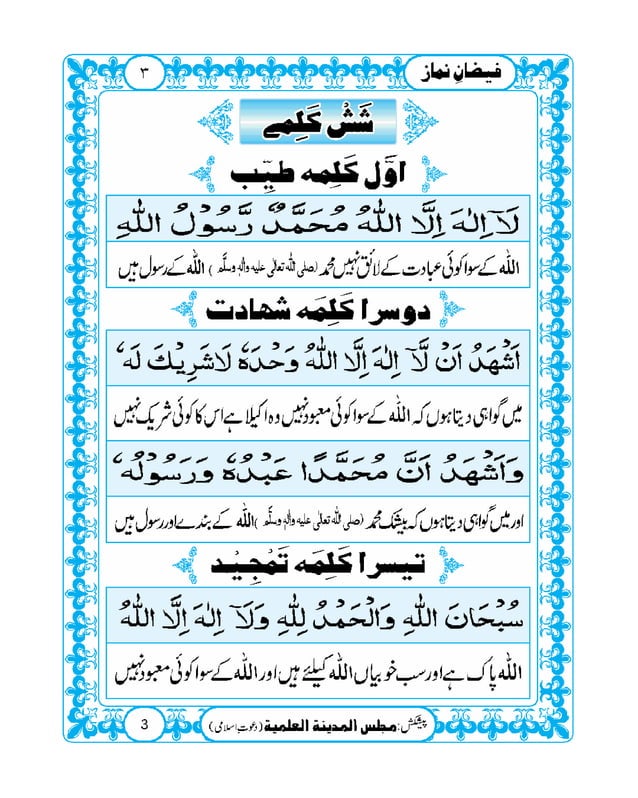 فیضانِ نماز
۳
شَشْ کَلِمے
اوّل کَلِمہ طیّب
لَآ اِلٰهَ اِلَّا اللهُ مُحَمَّدٌ رَّسُوْلُ اللهِ
اللہ کے سوا کوئی عبادت کے لائق نہیں محمد (صلی اللہ تعالٰی علیہ واٰلہٖ وسلَّم) اللہ کے رسول ہیں
دوسرا کَلِمَہ شہادت
اَشْهَدُ اَنْ لَّآ اِلٰهَ اِلَّا اللهُ وَحْدَهٗ لَاشَرِيْكَ لَهٗ
میں گواہی دیتا ہوں کہ اللہ کے سوا کوئی معبود نہیں وہ اکیلا ہے اس کا کوئی شریک نہیں
وَاَشْهَدُ اَنَّ مُحَمَّدًا عَبْدُهٗ وَرَسُوْلُهٗ
اور میں گواہی دیتا ہوں کہ بیشک محمد (صلی اللہ تعالٰی علیہ واٰلہٖ وسلَّم) اللہ کے بندے اور رسول ہیں
تیسرا کَلِمَہ تَمْجِیْد
سُبْحَانَ اللهِ وَالْحَمْدُ لِلّٰهِ وَلَآ اِلٰهَ اِلَّا اللهُ
اللہ پاک ہے اور سب خوبیاں اللہ کیلئے ہیں اور اللہ کے سوا کوئی معبود نہیں
پیشکش: مجلس المدینۃ العلمیۃ (دعوتِ اسلامی)
3